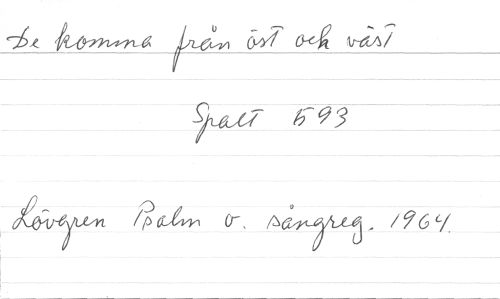 De komma från öst och väst
Spalt 593
Lövgren Psalm o. sångreg. 1964.